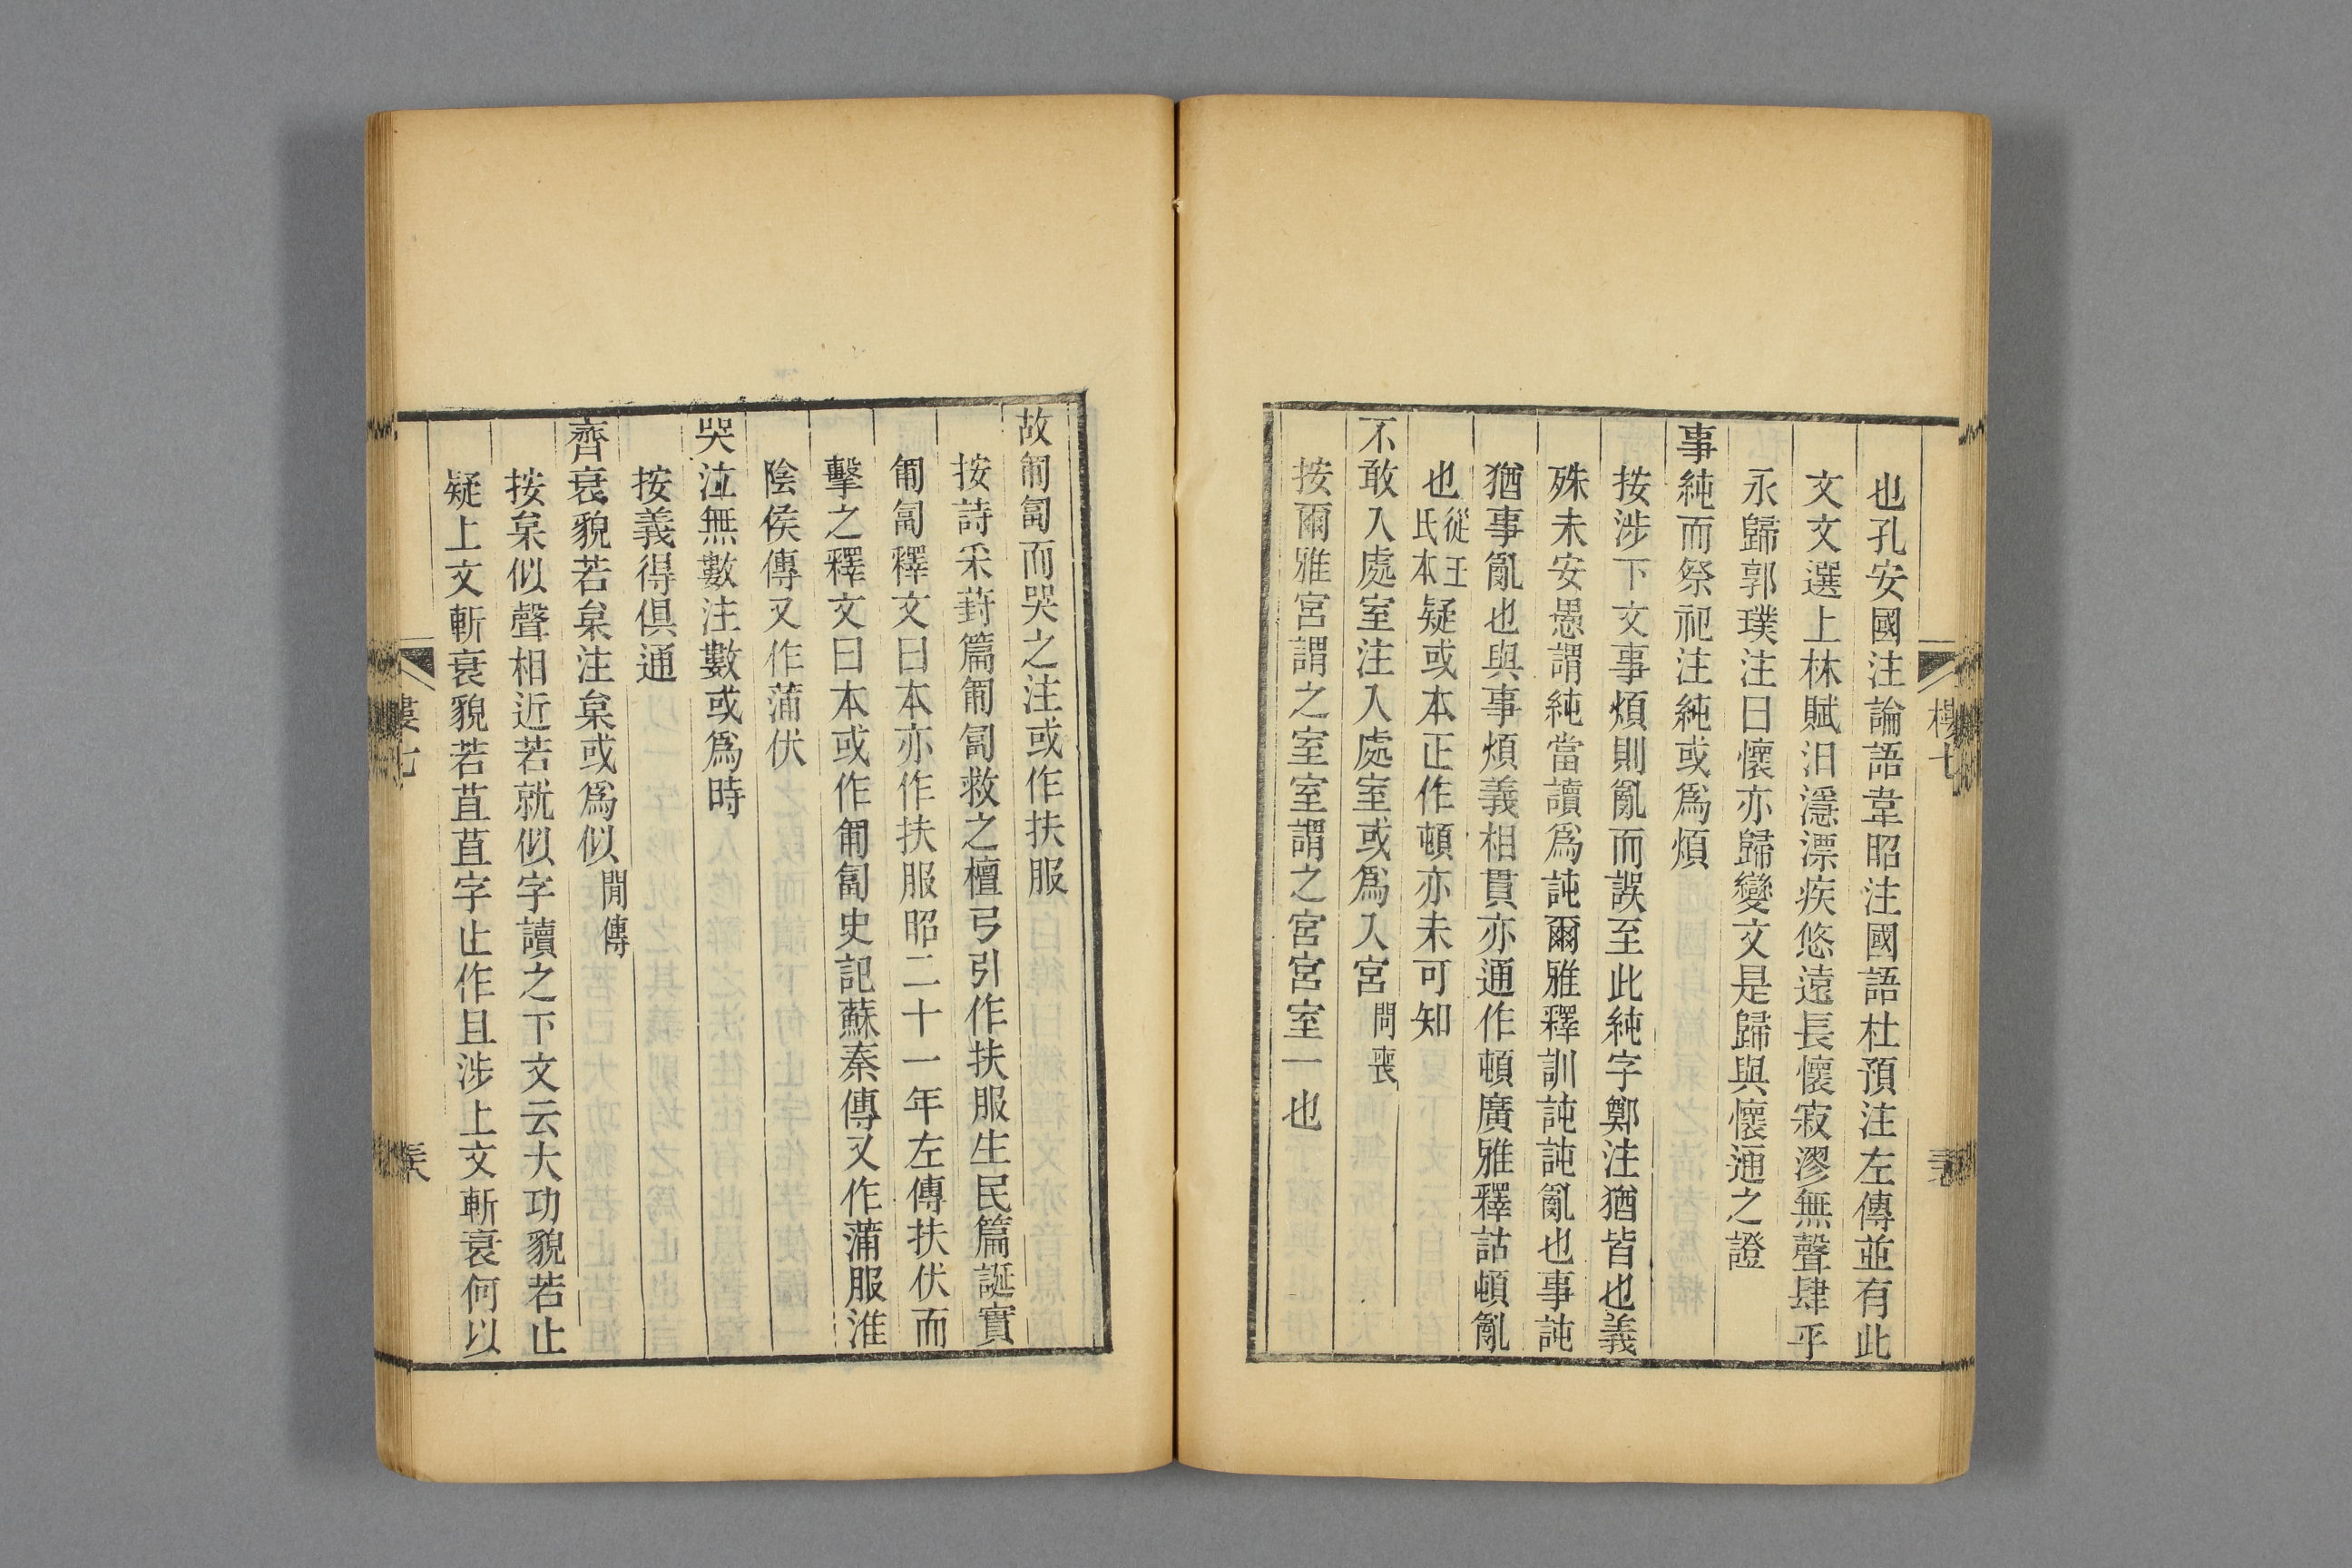 也孔安國注論語韋昭注國語杜預注左傳並有此
文文選上林賦汨濦漂疾悠遠長懷寂漻無聲肆乎
永歸郭璞注曰懷亦歸變文是歸與懷通之證
事純而祭祀注純或爲煩
按涉下文事煩則亂而誤至此純字鄭注猶皆也義
殊未安愚謂純當讀爲訰爾雅釋訓訰訰亂也事訰
猶事亂也與事煩義相貫亦通作頓廣雅釋詁頓亂
也從王氏本疑或本正作頓亦未可知
不敢入處室注入處室或爲入宮問喪
按爾雅宮謂之室室謂之宮宮室一也
故匍匐而哭之注或作扶服
按詩采葑篇匍匐救之檀弓引作扶服生民篇誕實
匍匐釋文曰本亦作扶服昭二十一年左傳扶伏而
擊之釋文曰本或作匍匐史記蘇秦傳又作蒲服淮
陰侯傳又作蒲伏
哭泣無數注數或爲時
按義得俱通
齊衰貌若枲注枲或爲似閒傳
按枲似聲相近若就似字讀之下文云大功貌若止
疑上文斬衰貌若苴苴字止作且涉上文斬衰何以